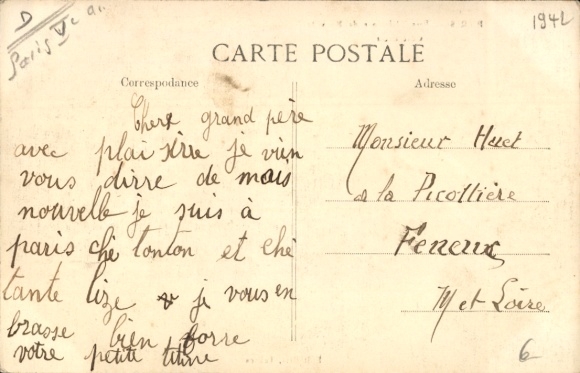 D
Paris Ve ar.
1942
CARTE POSTALE
Correspodance
Adresse
Cher grand père
avec plaisirre je vien
vous dirre de mais
nouvelle je suis à
paris ché tonton et ché
tante lize je vous en
brasse bien forre
votre petite titine
Monsieur Huet
à la Picottière
Feneux
M et Loire
6